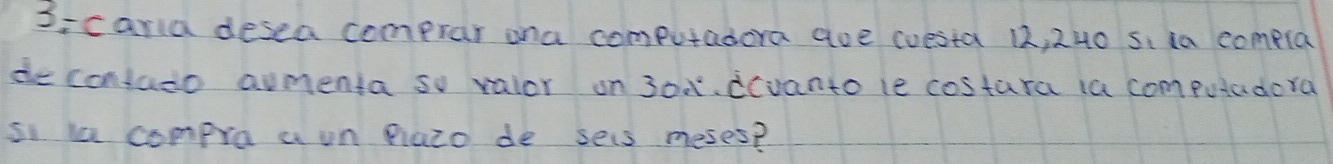 3.- carla desea comprar una computadora que cuesta 12,240 si la compra
de contado aumenta su valor un 30%. ¿cuanto le costara la computadora
si la compra a un plazo de seis meses?